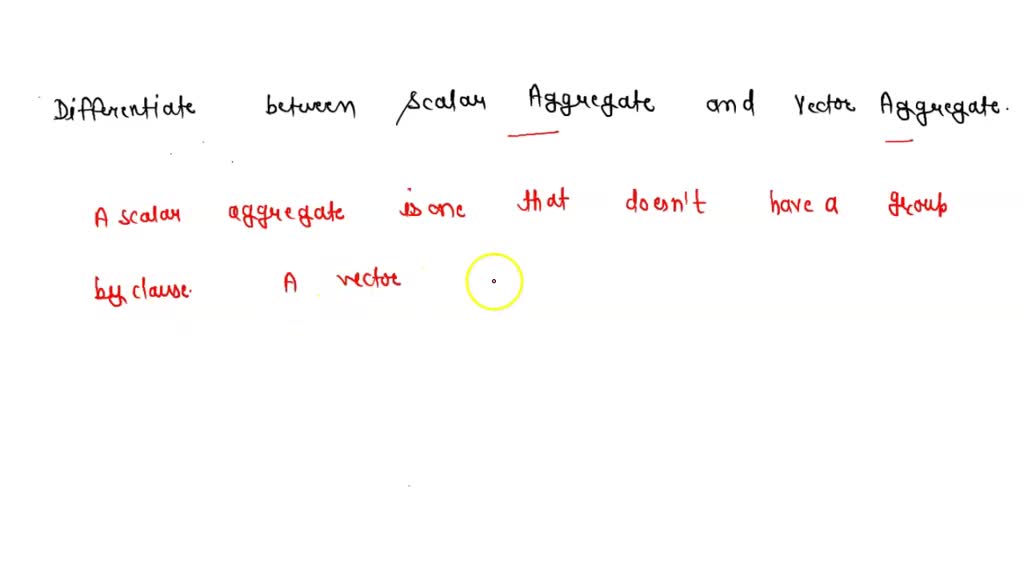 Differentiate between Scalar Aggregate and Vector Aggregate.
A scalar aggregate is one that doesn't have a group
by clause. A vector